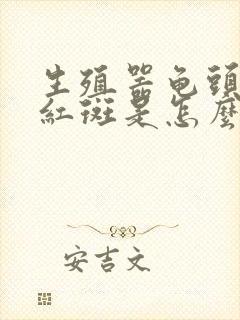 生殖器龟頭
紅斑是怎麽
安吉文